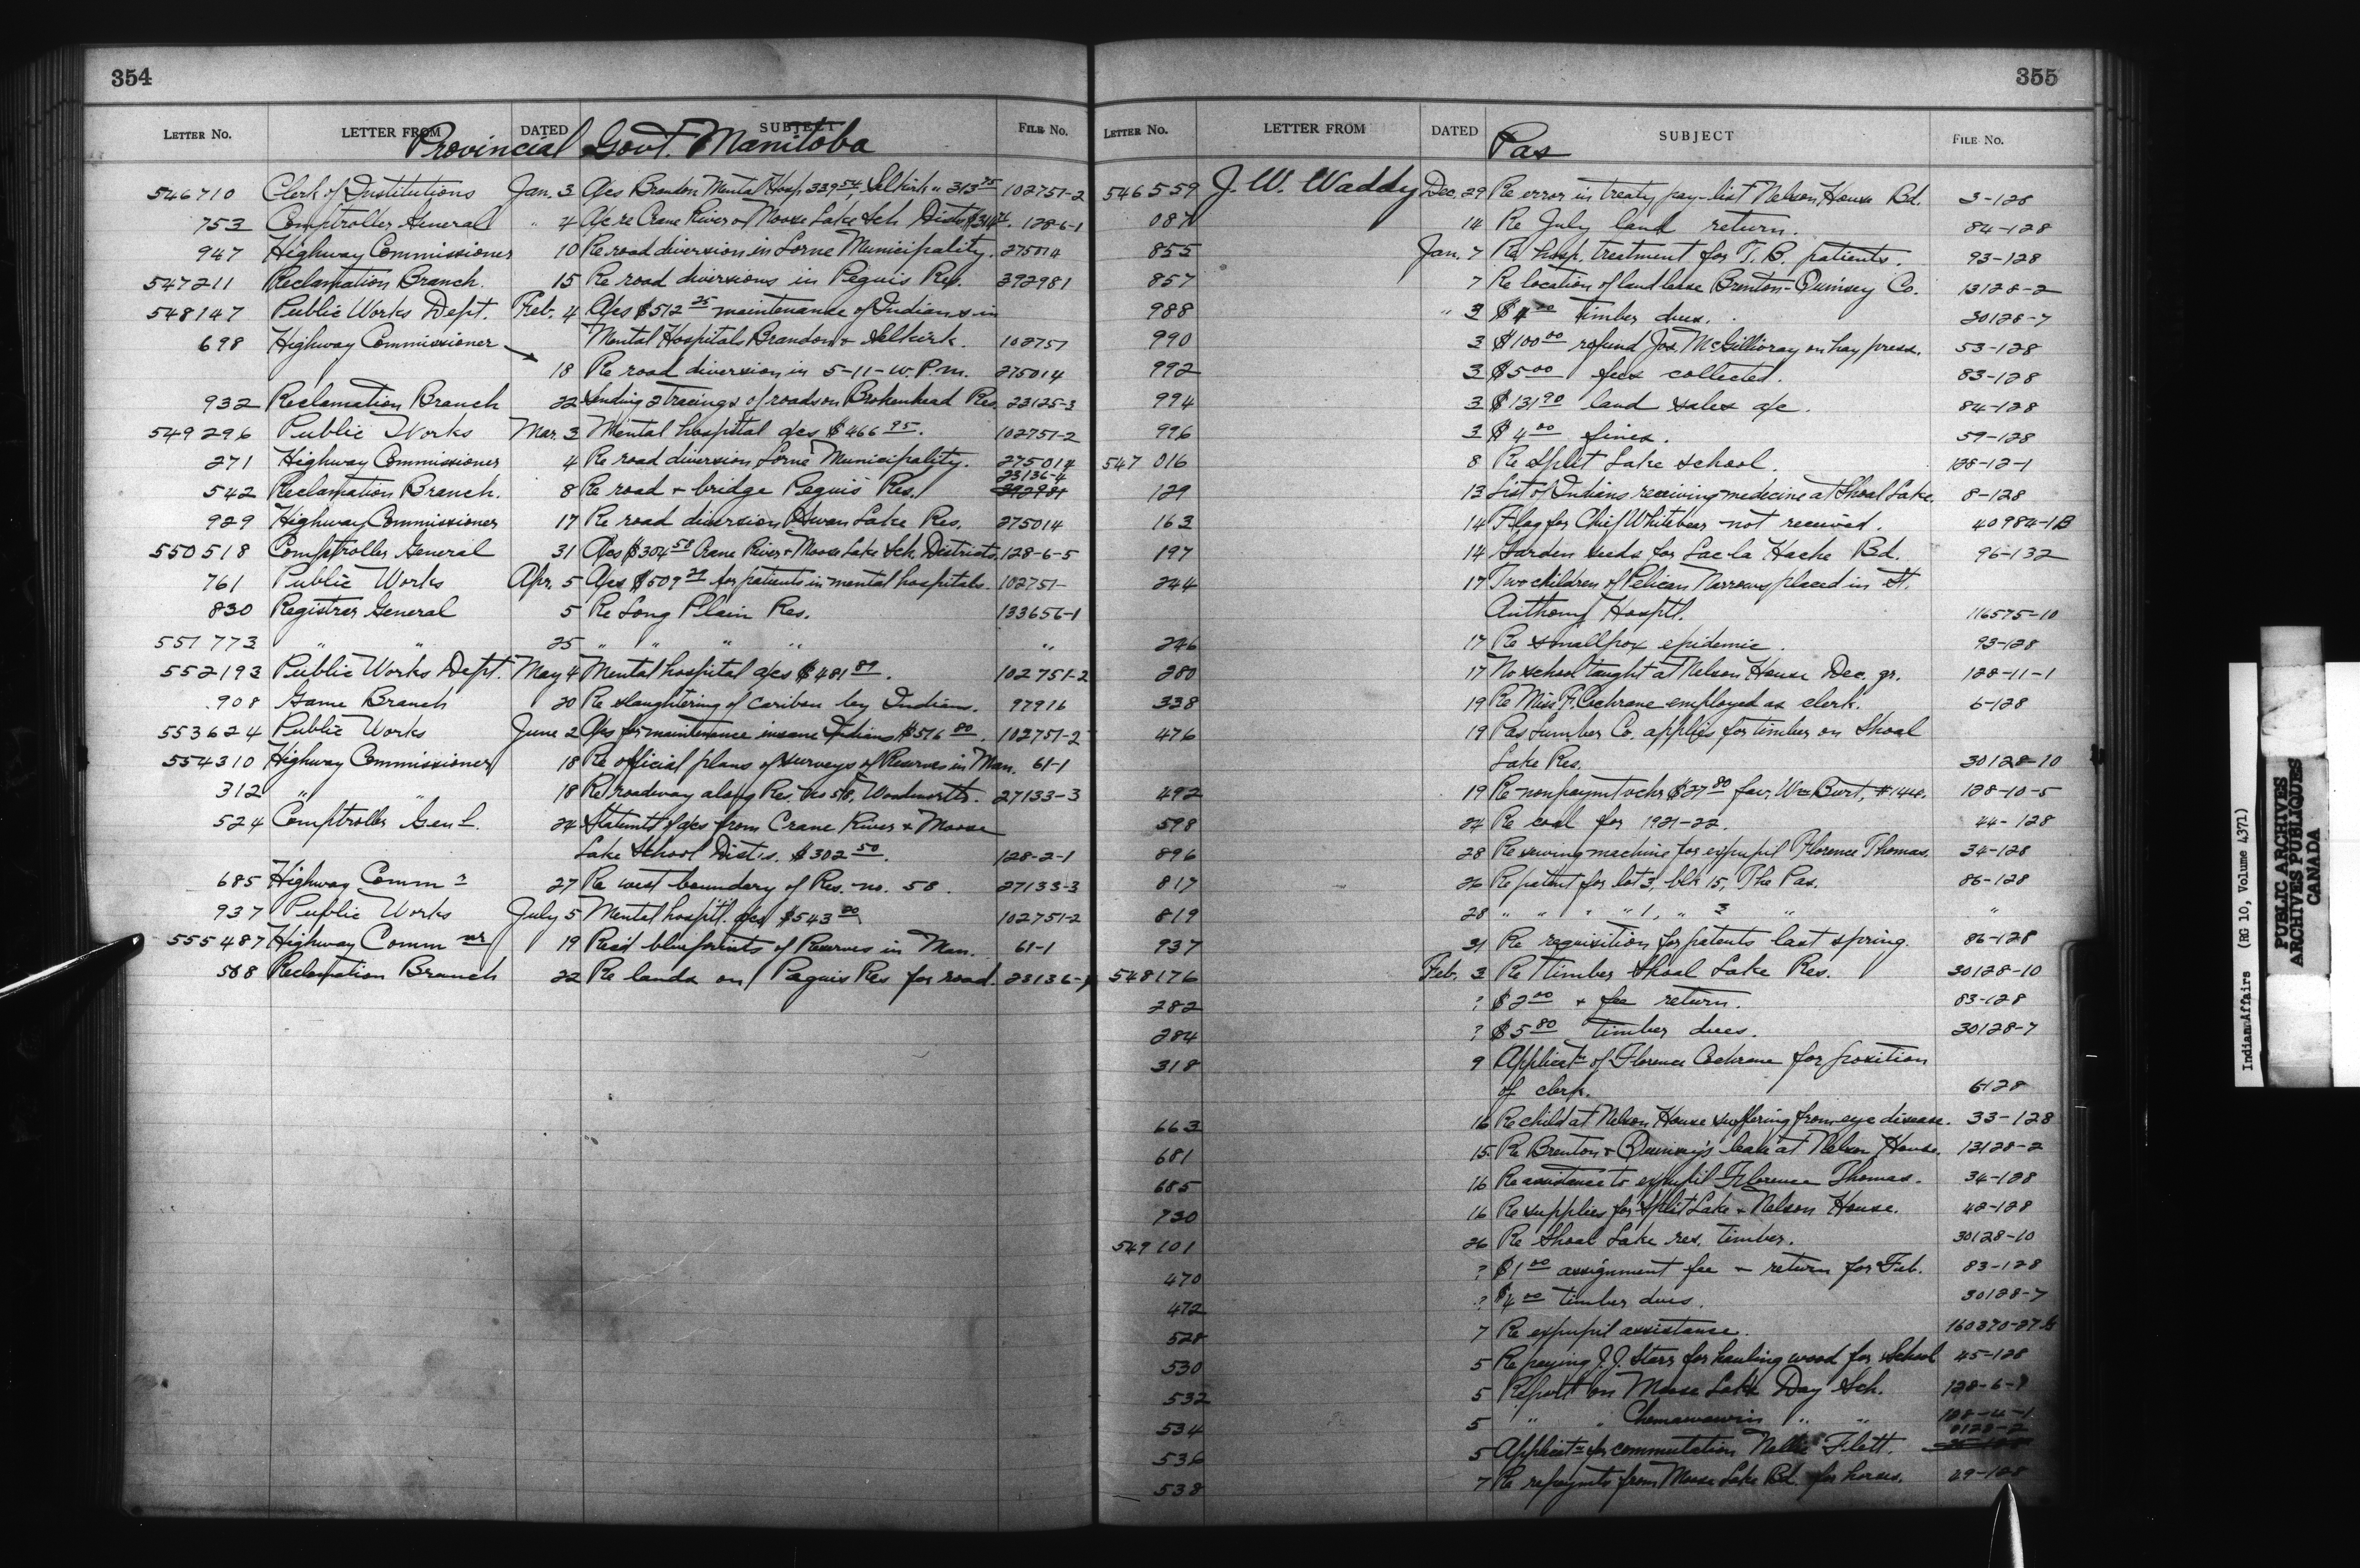 354
LETTER No. LETTER FROM DATED SUBJECT FILE No.
Provincial Govt. Manitoba
546710 Clerk of Institutions Jan. 3 A/cs Brandon Mental Hosp. 339 54, Selkirk " 313 75 102751-2
753 Comptroller General " 4 A/c re Crane River & Moose Lake Sch. Dists 128-6-1
947 Highway Commissioner 10 Re road diversion in Lorne Municipality. 275014
547211 Reclamation Branch. 15 Re road diversions in Peguis Res. 392981
548147 Public Works Dept. Feb. 4 A/cs $512 25 maintenance of Indians in
698 Highway Commissioner Mental Hospitals Brandon & Selkirk. 102751
18 Re road diversion in 5-11-W.P.M. 275014
932 Reclamation Branch 22 Sending 2 tracings of roads on Brokenhead Res. 23125-3
549296 Public Works Mar. 3 Mental hospital a/cs $466 95. 102751-2
271 Highway Commissioner 4 Re road diversion Lorne Municipality. 275014
542 Reclamation Branch. 8 Re road & bridge Peguis Res. 23136-4 392981
929 Highway Commissioner 17 Re road diversion Swan Lake Res. 275014
550518 Comptroller General 31 A/cs $304 58 Crane River & Moose Lake Sch. Districts. 128-6-5
761 Public Works Apr. 5 A/cs $509 29 for patients in mental hospitals. 102751-
830 Registrar General 5 Re Long Plain Res. 133656-1
551773 " " 25 " " " " "
552193 Public Works Dept. May 4 Mental hospital a/cs $481 89. 102751-2
908 Game Branch 20 Re slaughtering of caribou by Indians. 97916
553624 Public Works June 2 A/cs for maintenance insane Indians $516 80. 102751-2
554310 Highway Commissioner 18 Re official plans of surveys of Reserves in Man. 61-1
312 " " 18 Re roadway along Res. No 58, Woodworth. 27133-3
524 Comptroller Genl. 24 Statemts of a/cs from Crane River & Moose
Lake School Dists. $302 50. 128-2-1
685 Highway Commr 27 Re west boundary of Res. no. 58. 27133-3
937 Public Works July 5 Mental hosptl. a/cs $543 20 102751-2
555487 Highway Comm nr 19 Recd blueprints of Reserves in Man. 61-1
568 Reclamation Branch 22 Re lands on Peguis Res for road. 23136-4
355
LETTER No. LETTER FROM DATED SUBJECT FILE No.
Pas
546559 J. W. Waddy Dec. 29 Re error in treaty pay-list Nelson House Bd. 3-128
087 14 Re July land return. 84-128
855 Jan. 7 Re hosp. treatment for T. B. patients. 93-128
857 7 Re location of land lease Brenton-Quinsey Co. 13128-2
988 " 3 $4 00 timber dues. 30128-7
990 3 $100 00 refund Jos. McGillivray on hay press. 53-128
992 3 $5 00 fees collected. 83-128
994 3 $131 90 land sales a/c. 84-128
996 3 $4 00 fines. 59-128
547 016 8 Re Split Lake school. 128-12-1
129 13 List of Indians receiving medicine at Shoal Lake. 8-128
163 14 Flag for Chief Whitebear not received. 40984-1B
197 14 Garden seeds for Lac-la Hache Bd. 96-132
244 17 Two children of Pelican Narrows placed in St.
Anthony Hosptl. 116575-10
246 17 Re smallpox epidemic. 93-128
280 17 No school taught at Nelson House Dec. qr. 128-11-1
338 19 Re Miss F. Cochrane employed as clerk. 6-128
476 19 Pas Lumber Co. applies for timber on Shoal
Lake Res. 30128-10
492 19 Re nonpaymt vchr $27 80 favr Wm Burt, #1444. 128-10-5
598 24 Re coal for 1921-22. 44-128
896 28 Re sewing machine for expupil Florence Thomas. 34-128
817 26 Re patent for lot 3, blk 15, The Pas. 86-128
819 28 " " " " 1, " 3 " "
937 31 Re requisition for patents last spring. 86-128
548176 Feb. 3 Re timber Shoal Lake Res. 30128-10
282 ? $2 00 & fee return. 83-128
284 ? $5 80 timber dues. 30128-7
318 9 Applicatn of Florence Cochrane for position
of clerk. 6-128
663 16 Re child at Nelson House suffering from eye disease. 33-128
681 15 Re Brenton & Quinsey's lease at Nelson House. 13128-2
685 16 Re assistance to expupil Florence Thomas. 34-128
730 16 Re supplies for Split Lake & Nelson House. 42-128
549101 26 Re Shoal Lake res. timber. 30128-10
470 ? $1 00 assignment fee & return for Feb. 83-128
472 ? $4 00 timber dues. 30128-7
528 7 Re expupil assistance.
530 5 Re paying J. J. Starr for hauling wood for School 45-128
532 5 Report on Moose Lake Day Sch. 128-6-
534 5 " " Chemawawin " " 128-4-1
536 5 Applicatn for commutation Nellie Flett. 8128-2
538 7 Re repaymts from Moose Lake Bd. for horses. 29-128
Indian Affairs (RG 10, Volume 4371)
PUBLIC ARCHIVES
ARCHIVES PUBLIQUES
CANADA